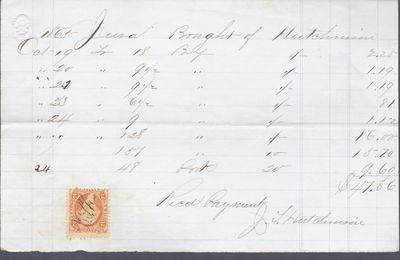 1865 Jura Bought of Hutchinson
Oct 19 To 18 Beef 2.25
" 20 9 1/2 " 1.19
" 22 9 1/2 " 1.19
" 23 6 1/2 " 81
" 24 9 " 1.12
" " 128 " 16.00
157 " 10 15.70
24 48 Pork 20 9.60
$47.86
Recd Payment
J. Hutchinson